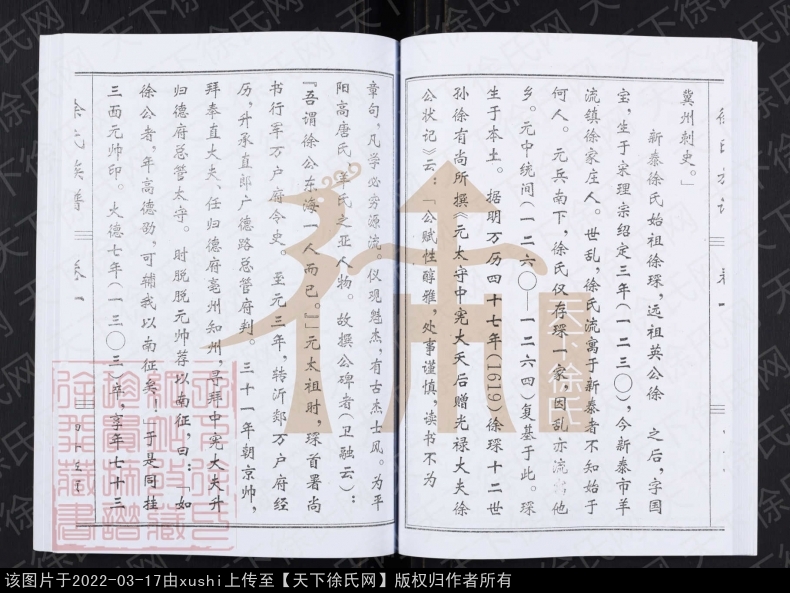 冀州刺史。」
新泰徐氏始祖徐琛，远祖英公徐 之后，字国
宝，生于宋理宗绍定三年(一二三〇)，今新泰市羊
流镇徐家庄人。世乱，徐氏流寓于新泰者不知始于
何人。元兵南下，徐氏仅存琛一家，因乱亦流 他
乡。元中统间(一二六〇—一二六四)复基于此。琛
生于本土。据明万历四十七年(1619)徐琛十二世
孙徐有尚所撰《元太守中宪大夫后赠光禄大夫徐
公状记》云：「公赋性醇雅，处事谨慎，读书不为
章句，凡学必穷源流。仪观魁杰，有古杰士风。为平
阳高唐氏、羊氏之亚人物。故撰公碑者(卫融云)：
『吾谓徐公东海一人而已。』」元太祖时，琛首署尚
书行军万户府令史。至元三年，转沂郯万户府经
历，升承直郎广德路总管府判。三十一年朝京帅，
拜奉直大夫、任归德府亳州知州，寻拜中宪大夫升
归德府总管太守。时脱脱元帅荐以南征，曰：「如
徐公者，年高德劭，可辅我以南征矣！」于是同挂
三面元帅印。大德七年(一三〇三)卒，享年七十三
徐氏族谱 卷一
天下徐氏
该图片于2022-03-17由xushi上传至【天下徐氏网】版权归作者所有